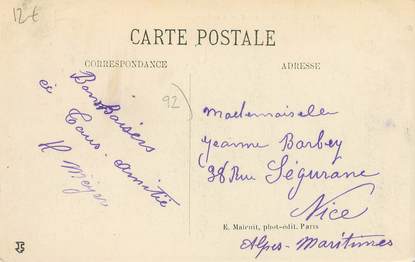 12€
CARTE POSTALE
CORRESPONDANCE
ADRESSE
92)
Bons Baisers
et
amitié
Mademoiselle
Jeanne Barbey
38 Rue Ségurane
Nice
Alpes-Maritimes
E. Malcuit, phot-édit. Paris